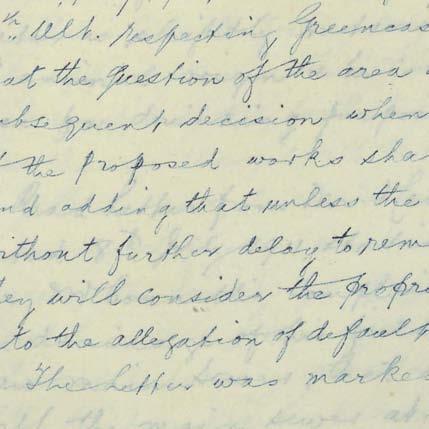 th. Ult. respecting Greencas
at the question of the area
ubsequent decision when
the proposed works sha
nd adding that unless the
ithout further delay to rem
ey will consider the propri
to the allegation of default
The letter was marke